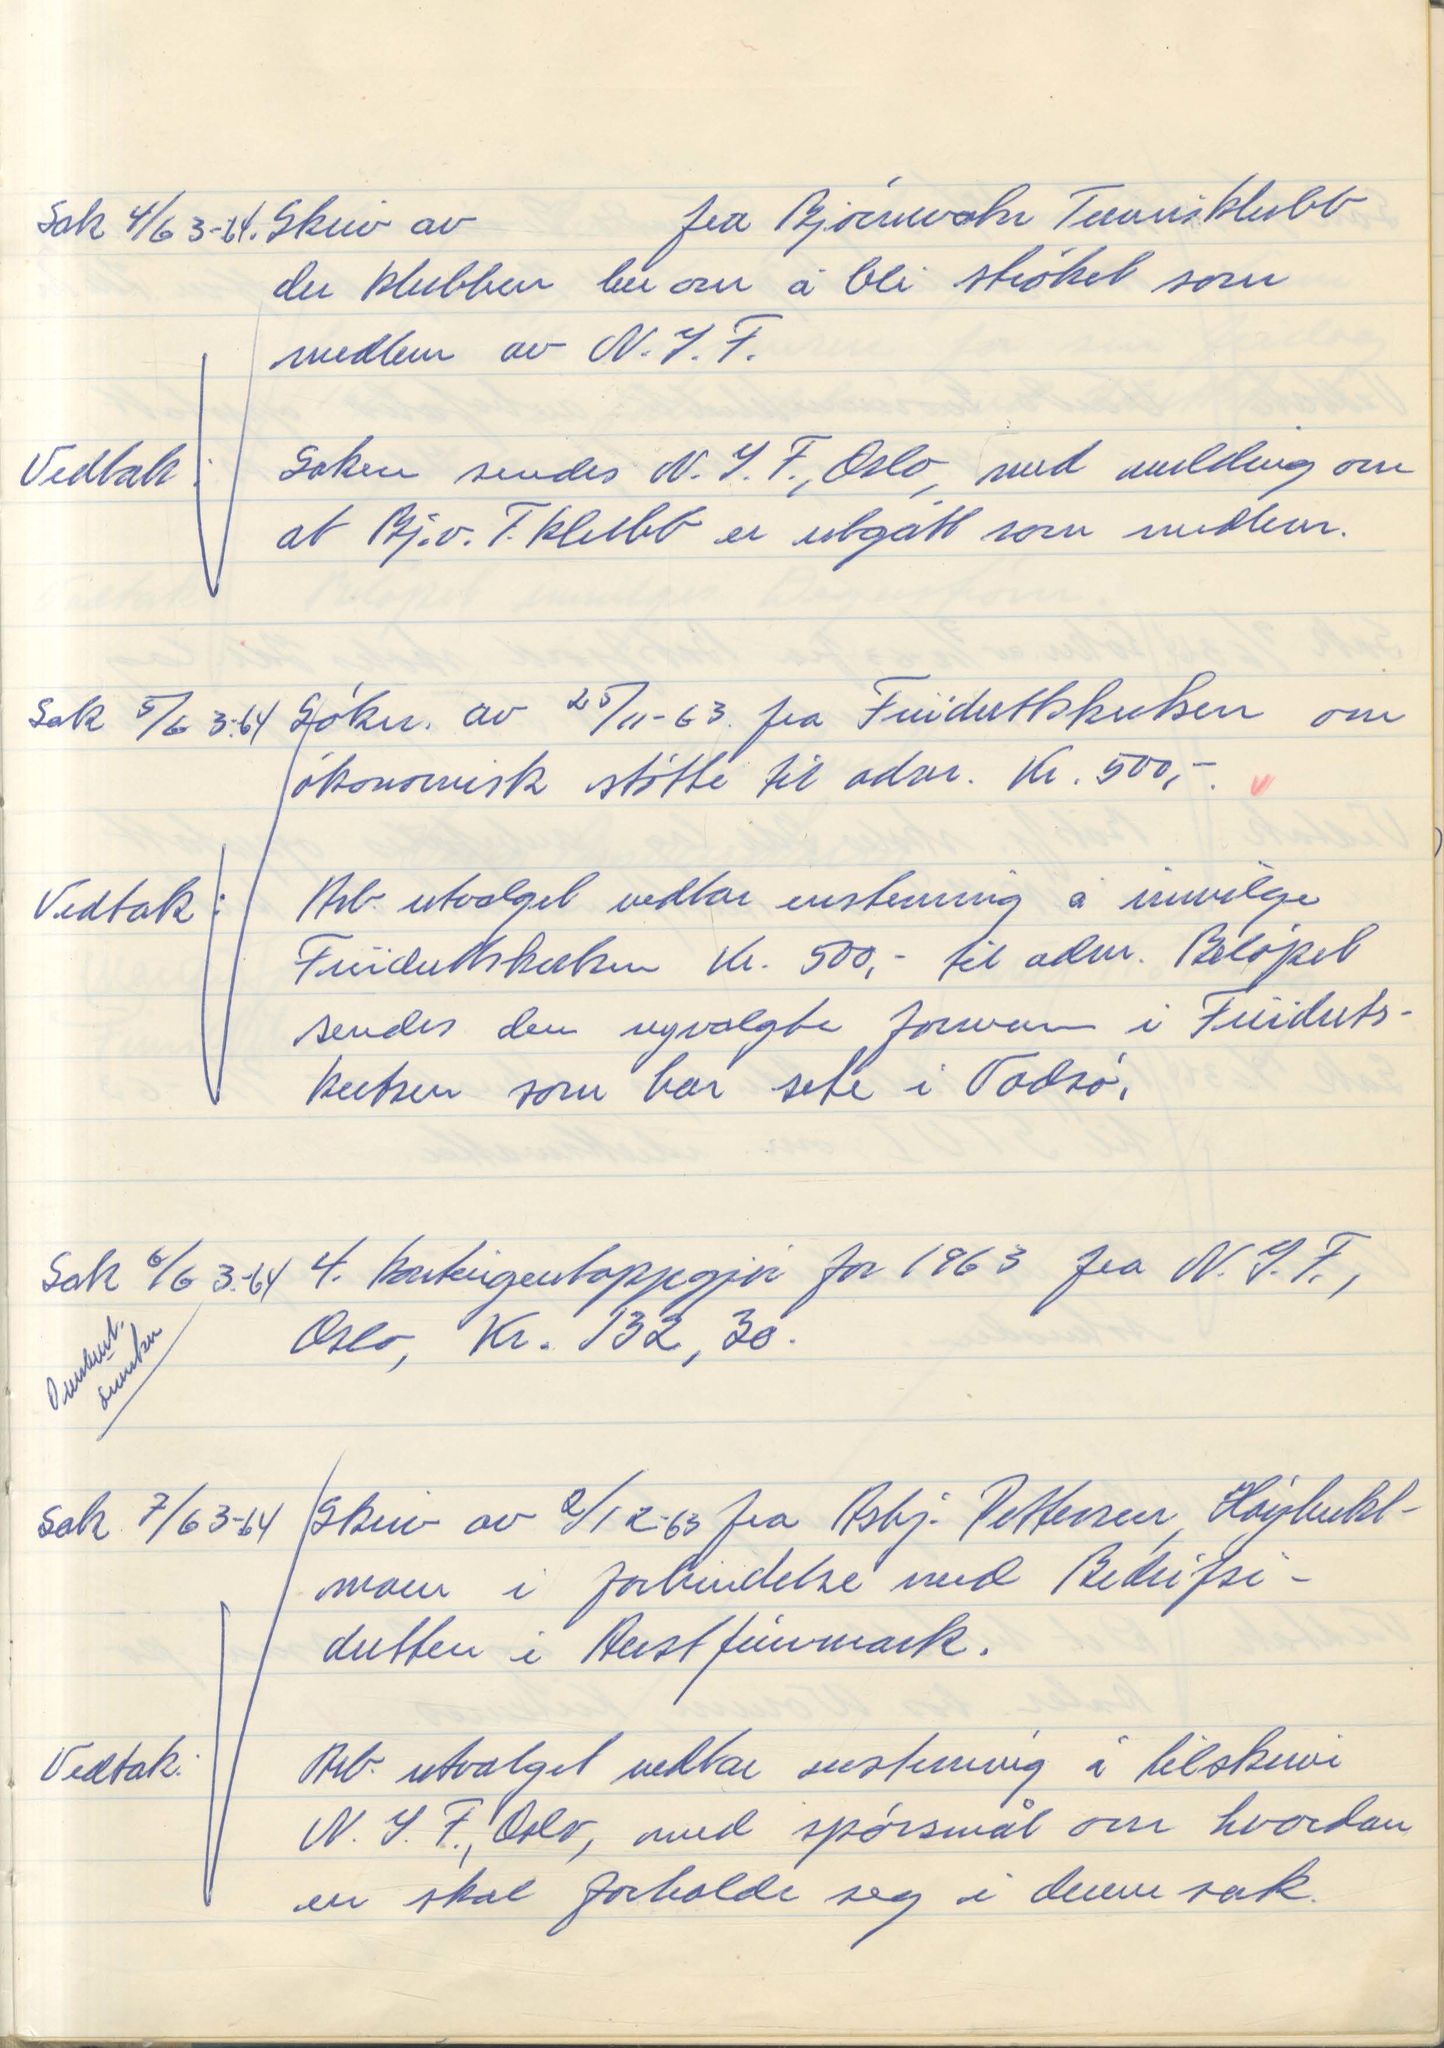 Sak 4/63-64. Skriv av fra Bjørnevatn Tennisklubb
der klubben ber om å bli strøket som
medlem av N.I.F.
Vedtak: Saken sendes N.I.F., Oslo, med melding om
at Bj.v. T.klubb er utgått som medlem.
Sak 5/63-64 Søkn. av 25/11-63 fra Friidrettskretsen om
økonomisk støtte til adm. Kr. 500,-.
Vedtak: Arb. utvalget vedtar enstemmig å innvilge
Friidrettskretsen Kr. 500,- til adm. Beløpet
sendes den nyvalgte formann i Friidretts-
kretsen som har sete i Vadsø.
Sak 6/63-64 4. Kontingentoppgjør for 1963 fra N.I.F.,
Oslo, Kr. 132,30.
Sak 7/63-64 Skriv av 2/12-63 fra Asbj. Pettersen, Høybukt-
moen i forbindelse med Bedriftsi-
dretten i Østfinnmark.
Vedtak: Arb. utvalget vedtar enstemmig å tilskrive
N.I.F., Oslo, med spørsmål om hvordan
en skal forholde seg i denne sak.